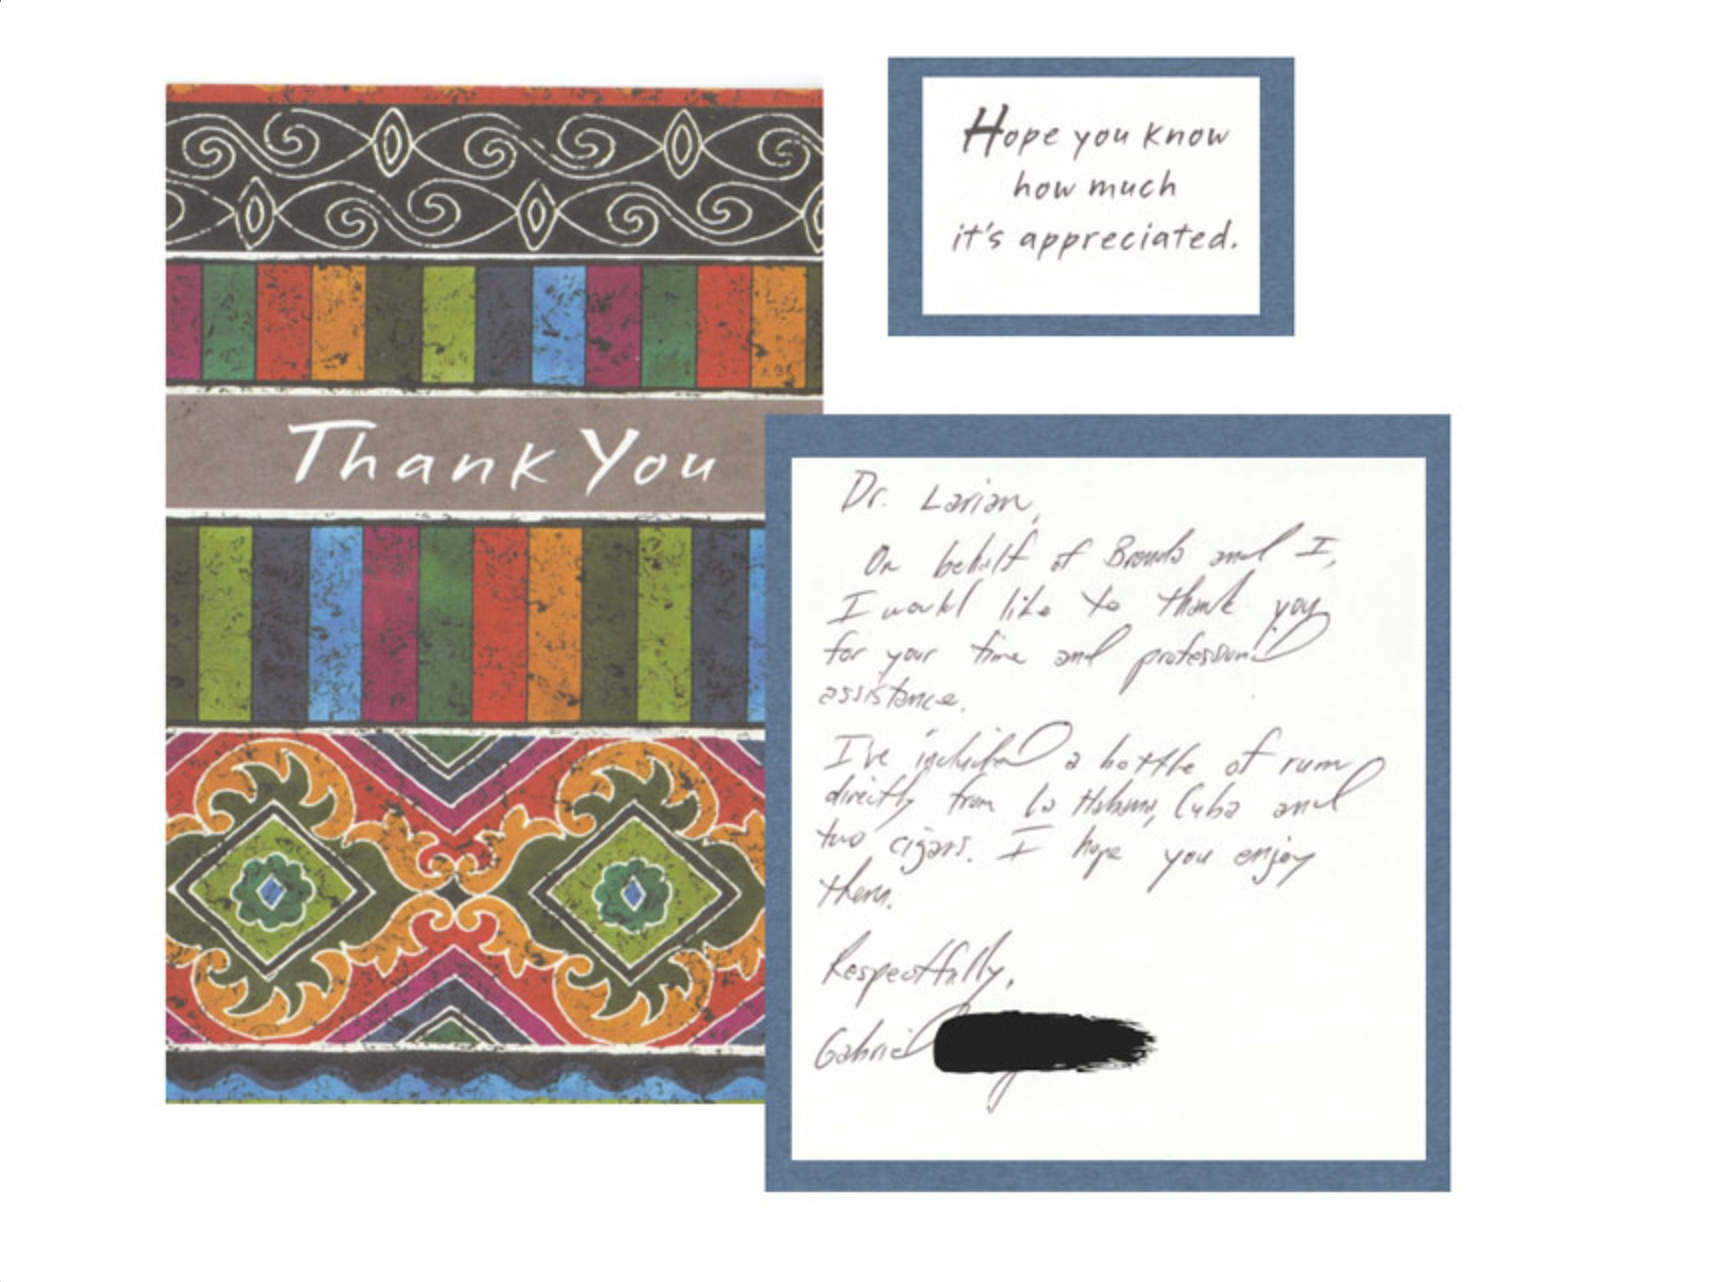 Thank You
Hope you know
how much
it's appreciated.
Dr. Larian,
On behalf of Brenda and I,
I would like to thank you
for your time and professional
assistance.
I've included a bottle of rum
directly from la Habana, Cuba and
two cigars. I hope you enjoy
them.
Respectfully,
Gabriel